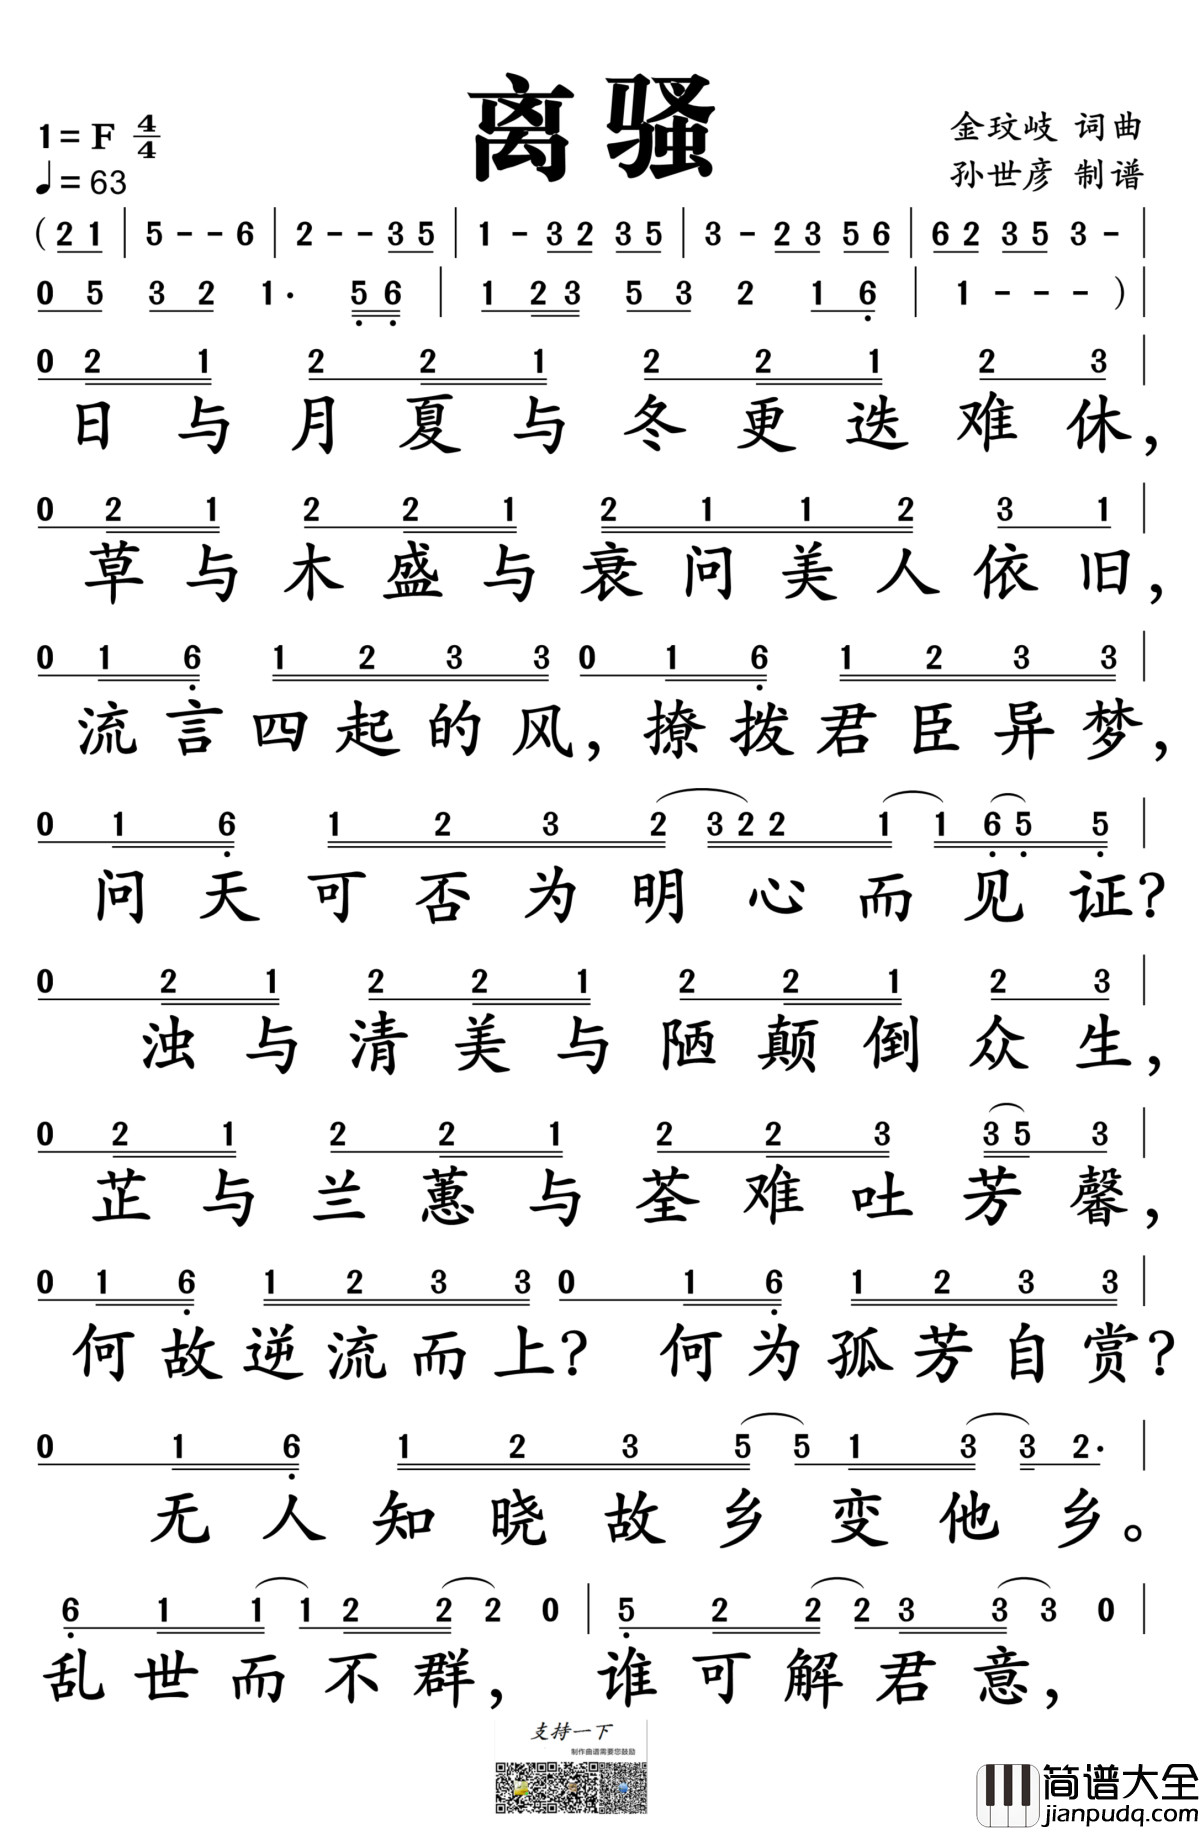 离骚
1=F 4/4
金玟岐 词曲
♩=63
孙世彦 制谱
(2 1 | 5 - - 6 | 2 - - 3 5 | 1 - 3 2 3 5 | 3 - 2 3 5 6 | 6 2 3 5 3 - |
0 5 3 2 1· 5 6 | 1 2 3 5 3 2 1 6 | 1 - - - ) |
0 2 1 2 2 1 2 2 1 2 3 |
日与月夏与冬更迭难休，
0 2 1 2 2 1 2 1 1 2 3 1 |
草与木盛与衰问美人依旧，
0 1 6 1 2 3 3 0 1 6 1 2 3 3 |
流言四起的风，撩拨君臣异梦，
0 1 6 1 2 3 2 3 2 2 1 1 6 5 5 |
问天可否为明心而见证？
0 2 1 2 2 1 2 2 1 2 3 |
浊与清美与陋颠倒众生，
0 2 1 2 2 1 2 2 3 3 5 3 |
芷与兰蕙与荃难吐芳馨，
0 1 6 1 2 3 3 0 1 6 1 2 3 3 |
何故逆流而上？何为孤芳自赏？
0 1 6 1 2 3 5 5 1 3 3 2·
无人知晓故乡变他乡。
6 1 1 1 2 2 2 0 | 5 2 2 2 3 3 3 0 |
乱世而不群，谁可解君意，
支持一下
制作曲谱需要您鼓励
简谱大全
jianpudq.com